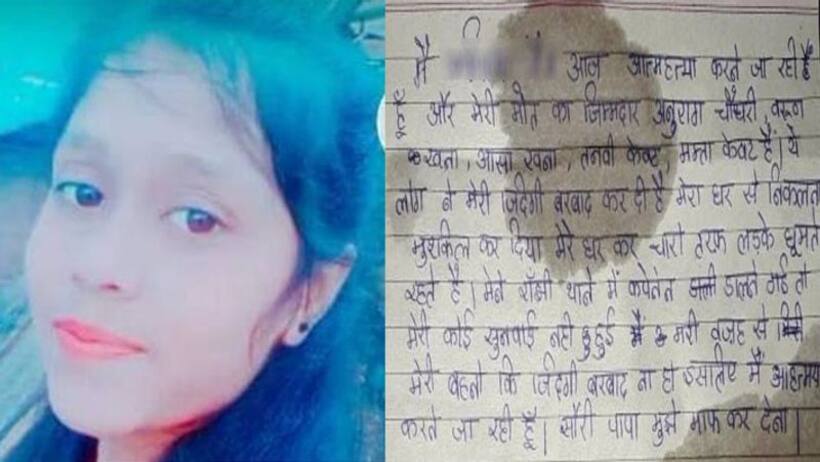 मैं आज आत्महत्या करने जा रही हैं
हूँ और मेरी मौत का जिम्मदार अनुराग चौधरी, वरूण
खता, आसा खना, तनवी केवट, ममता केवट है। ये
लोग ने मेरी जिंदगी बरबाद कर दी है मेरा घर से निकलना
मुश्किल कर दिया मेरे घर कर चारो तरफ लड़के घूमते
रहते है। मेने राँझी थाने में कपेलेन डालने गई तो
मेरी कोई सुनवाई नही हुई मैं मेरी वजह से
मेरी बहनो कि जिंदगी बरबाद ना हो इसलिए मैं आहत्मय
करने जा रही हूँ। सौरी पापा मुझे माफ कर देना।